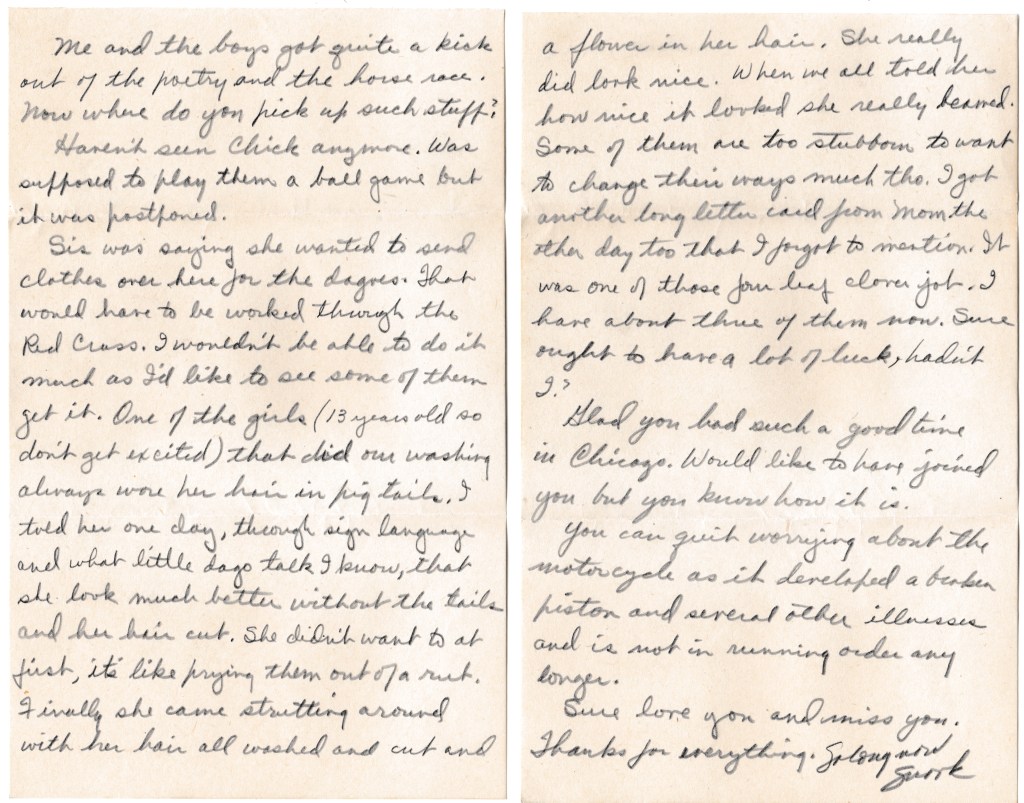 Me and the boys got quite a kick
out of the poetry and the horse race.
Now where do you pick up such stuff?
Haven't seen Chick anymore. Was
supposed to play them a ball game but
it was postponed.
Sis was saying she wanted to send
clothes over here for the dagoes. That
would have to be worked through the
Red Cross. I wouldn't be able to do it
much as I'd like to see some of them
get it. One of the girls (13 years old so
don't get excited) that did our washing
always wore her hair in pig tails. I
told her one day, through sign language
and what little dago talk I know, that
she look much better without the tails
and her hair cut. She didn't want to at
first, it's like prying them out of a rut.
Finally she came strutting around
with her hair all washed and cut and
a flower in her hair. She really
did look nice. When we all told her
how nice it looked she really beamed.
Some of them are too stubborn to want
to change their ways much tho. I got
another long letter card from Mom the
other day too that I forgot to mention. It
was one of those four leaf clover job. I
have about three of them now. Sure
ought to have a lot of luck, hadn't
I?
Glad you had such a good time
in Chicago. Would like to have joined
you but you know how it is.
You can quit worrying about the
motorcycle as it developed a broken
piston and several other illnesses
and is not in running order any
longer.
Sure love you and miss you.
Thanks for everything. So long now